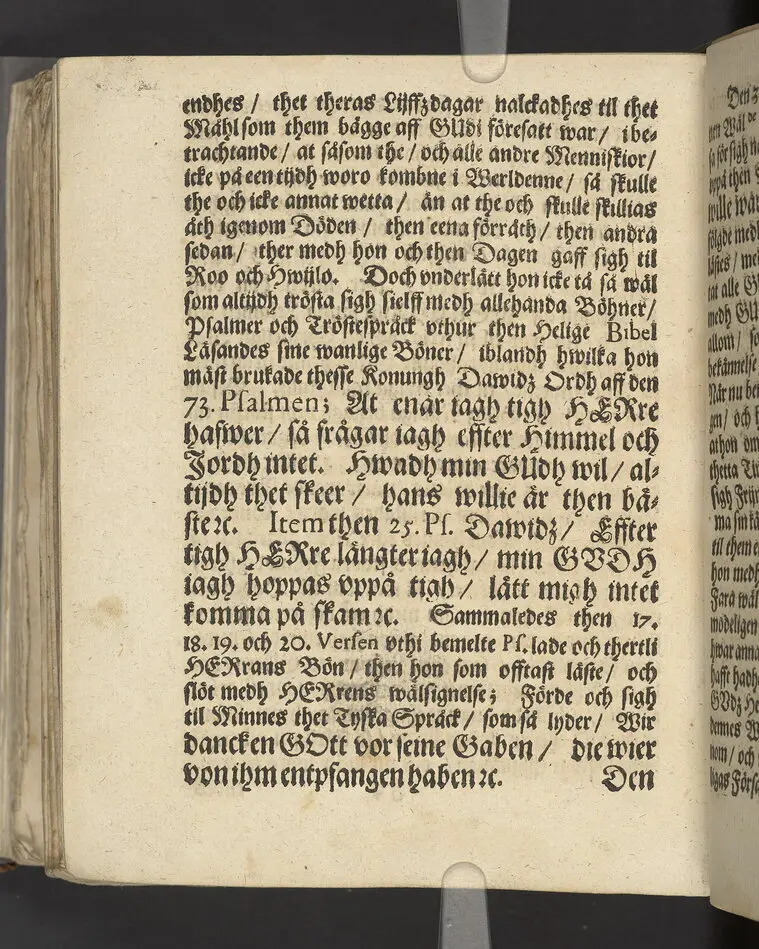 endhes / thet theras Lijffzdagar nalckadhes til thet
Måhl som them bägge aff GUdi föresatt war / i be-
trachtande / at såsom the / och alle andre Menniskior /
icke på een tijdh woro kombne i Werldenne / så skulle
the och icke annat wetta / än at the och skulle skillias
åth igenom Döden / then eena förräth / then andra
sedan / ther medh hon och then Dagen gaff sigh til
Roo och Hwijlo. Doch vnderlätt hon icke tå så wäl
som altijdh trösta sigh sielff medh allehanda Böhner /
Psalmer och Tröstespråck vthur then Helige Bibel
Läsandes sine wanlige Böner / iblandh hwilka hon
mäst brukade thesse Konungh Dawidz Ordh aff den
73. Psalmen; At enär iagh tigh HERre
hafwer / så frågar iagh effter Himmel och
Jordh intet. Hwadh min GUdh wil / al-
tijdh thet skeer / hans willie är then bä-
ste ꝛc. Item then 25. Ps. Dawidz / Effter
tigh HERre längter iagh / min GVDH
iagh hoppas vppå tigh / lätt migh intet
komma på skam ꝛc. Sammaledes then 17.
18. 19. och 20. Versen vthi bemelte Ps. lade och thertil
HERrans Bön / then hon som offtast läste / och
slöt medh HERrens wälsignelse; Förde och sigh
til Minnes thet Tyska Språck / som så lyder / Wir
dancken GOtt vor seine Gaben / die wier
von ihm entpfangen haben ꝛc. Den